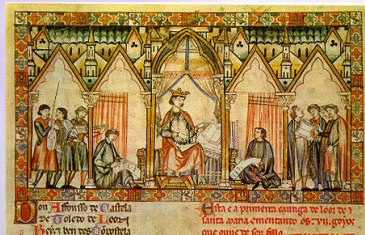 Don Affonso de Castela
de Toledo de Leon
Rey e ben des Conpostela
Esta e a primeira cantiga de loor de
santa maria ementando os .vii. goyos
que ouve de seu fillo